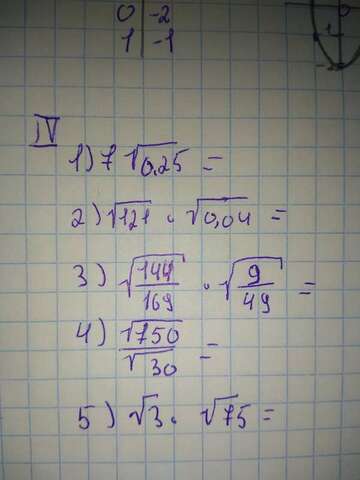 0 | -2 0
1 | -1 1
IV
1) 7 √0,25 =
2) √121 · √0,04 =
3) √144/169 · √9/49 =
4) √750/√30 =
5) √3 · √75 =